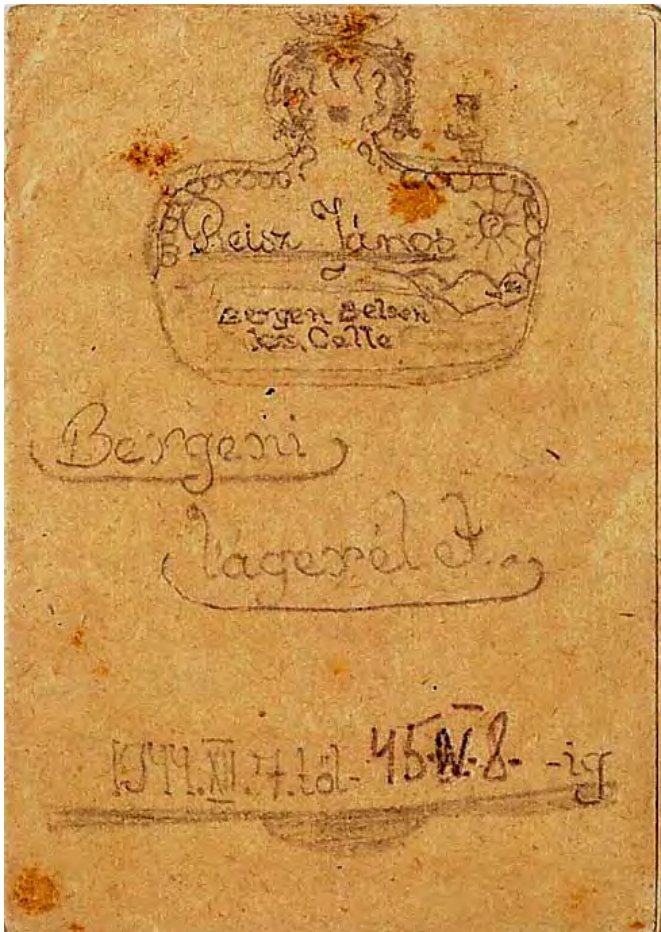 Reisz János
Bergen Belsen
Celle
Bergeni
lágerélet..
1944.XII.7.től-45.IV.8- -ig